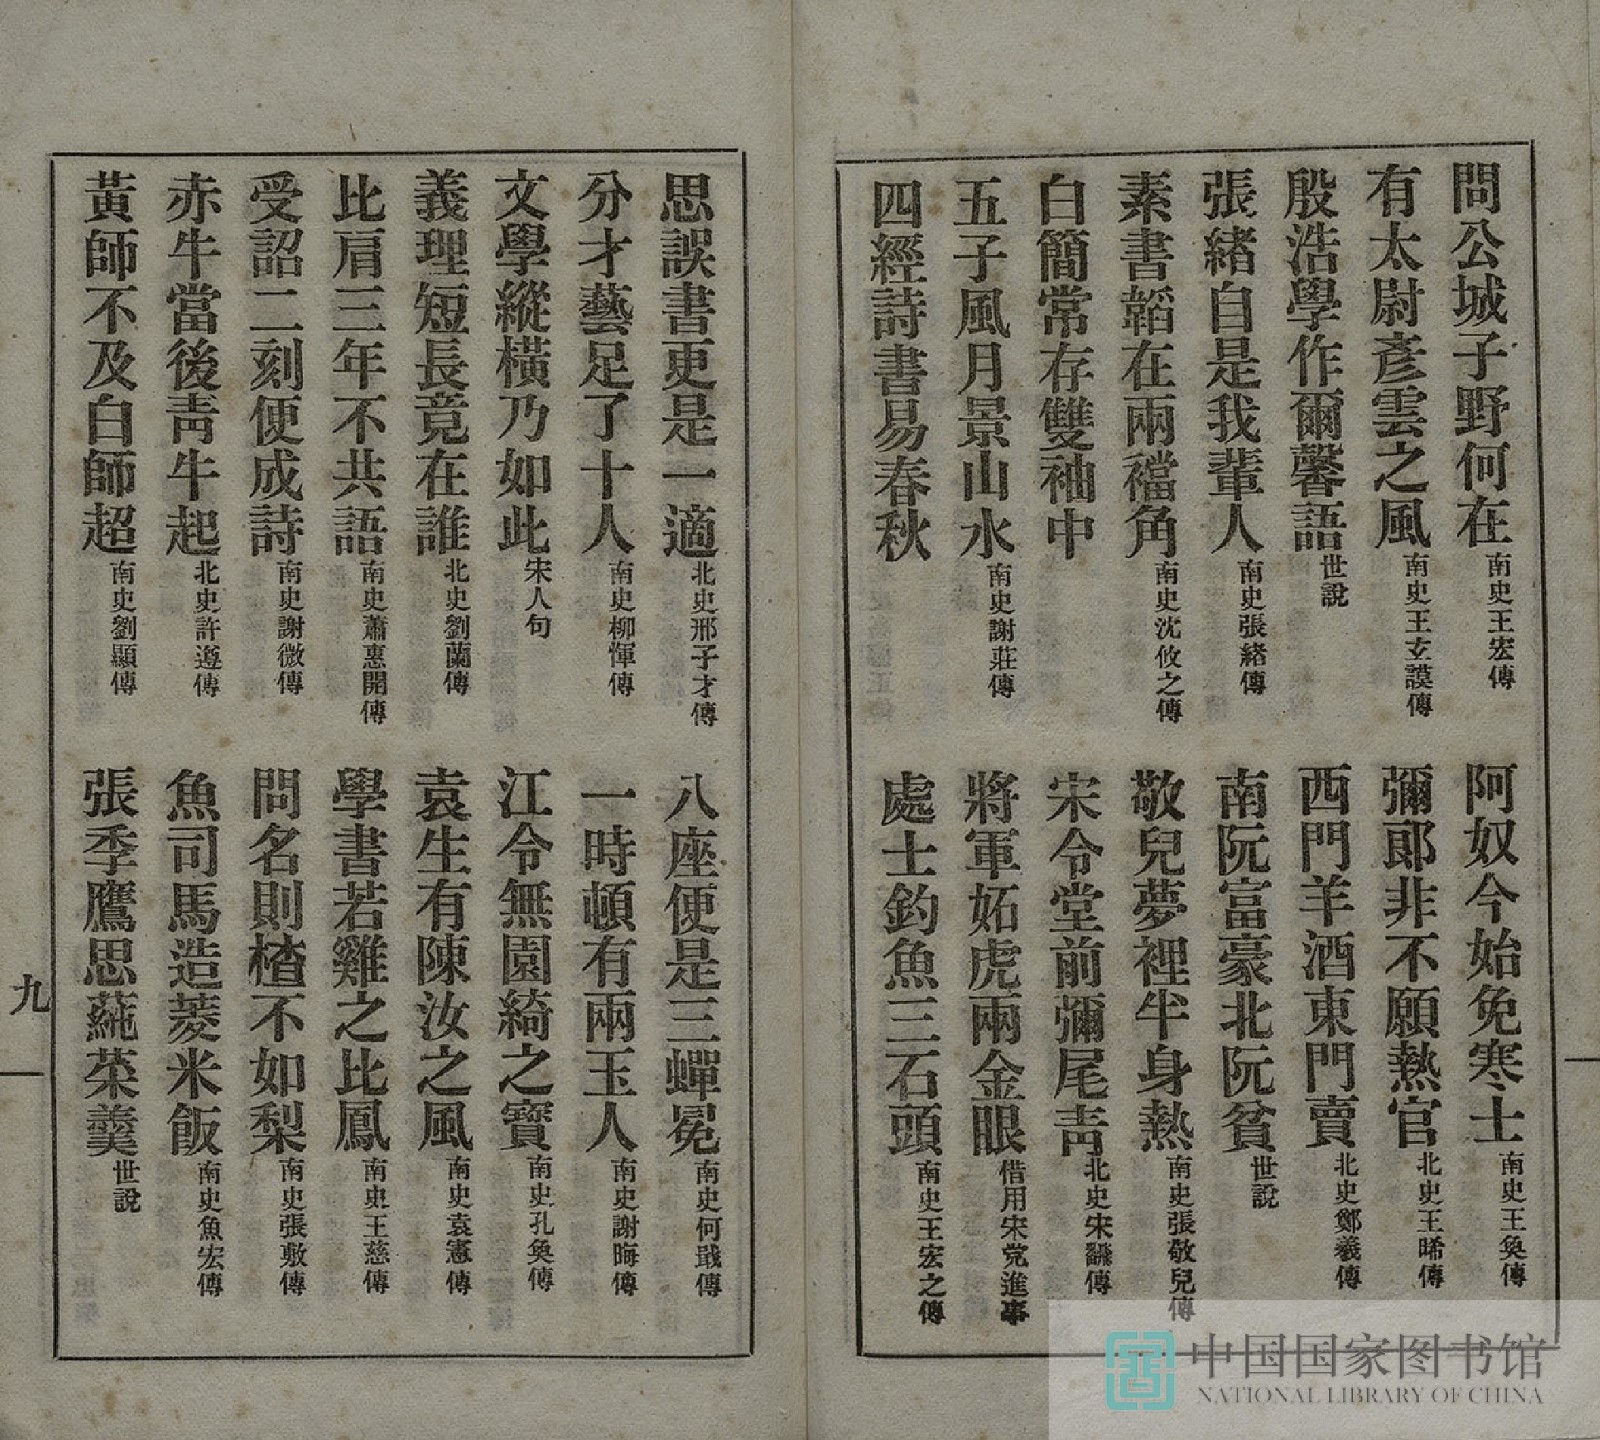 問公城子野何在 南史王宏傳 阿奴今始免寒士 南史王奐傳
有太尉彥雲之風 南史王玄謨傳 彌郎非不願熱官 北史王晞傳
殷浩學作爾馨語 世說 西門羊酒東門賣 北史鄭羲傳
張緒自是我輩人 南史張緒傳 南阮富豪北阮貧 世說
素書韜在兩襠角 南史沈攸之傳 敬兒夢裡半身熱 南史張敬兒傳
白簡常存雙袖中 宋令堂前彌尾青 北史宋飜傳
五子風月景山水 南史謝莊傳 將軍妬虎兩金眼 借用宋党進事
四經詩書易春秋 處士釣魚三石頭 南史王宏之傳
思誤書更是一適 北史邢子才傳 八座便是三蟬冕 南史何戢傳
分才藝足了十人 南史柳惲傳 一時頓有兩玉人 南史謝晦傳
文學縱橫乃如此 宋人句 江令無園綺之寶 南史孔奐傳
義理短長竟在誰 北史劉蘭傳 袁生有陳汝之風 南史袁憲傳
比肩三年不共語 南史蕭惠開傳 學書若雞之比鳳 南史王慈傳
受詔二刻便成詩 南史謝微傳 問名則楂不如梨 南史張敷傳
赤牛當後青牛起 北史許遵傳 魚司馬造菱米飯 南史魚宏傳
黃師不及白師超 南史劉顯傳 張季鷹思蒓菜羹 世說
九
中国国家图书馆
NATIONAL LIBRARY OF CHINA